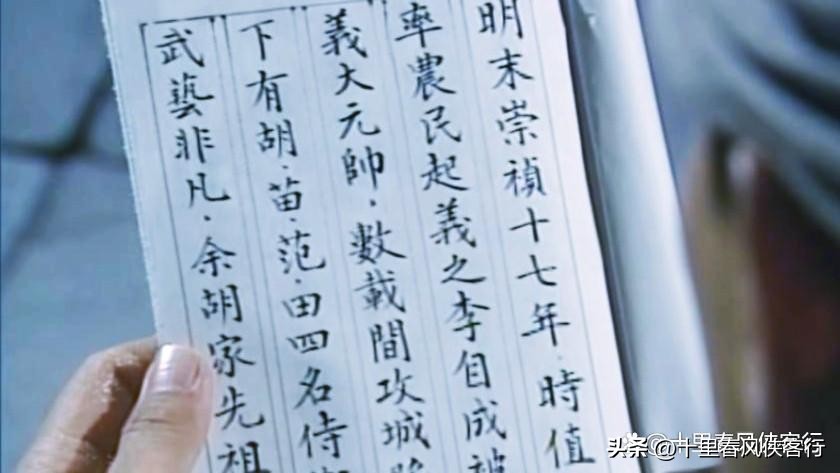 明末崇禎十七年·時值
率農民起義之李自成被
義大元帥·數載間攻城
下有胡·苗·范·田四名侍
武藝非凡·余胡家先祖
十里春风侠客行
头条 @十里春风侠客行